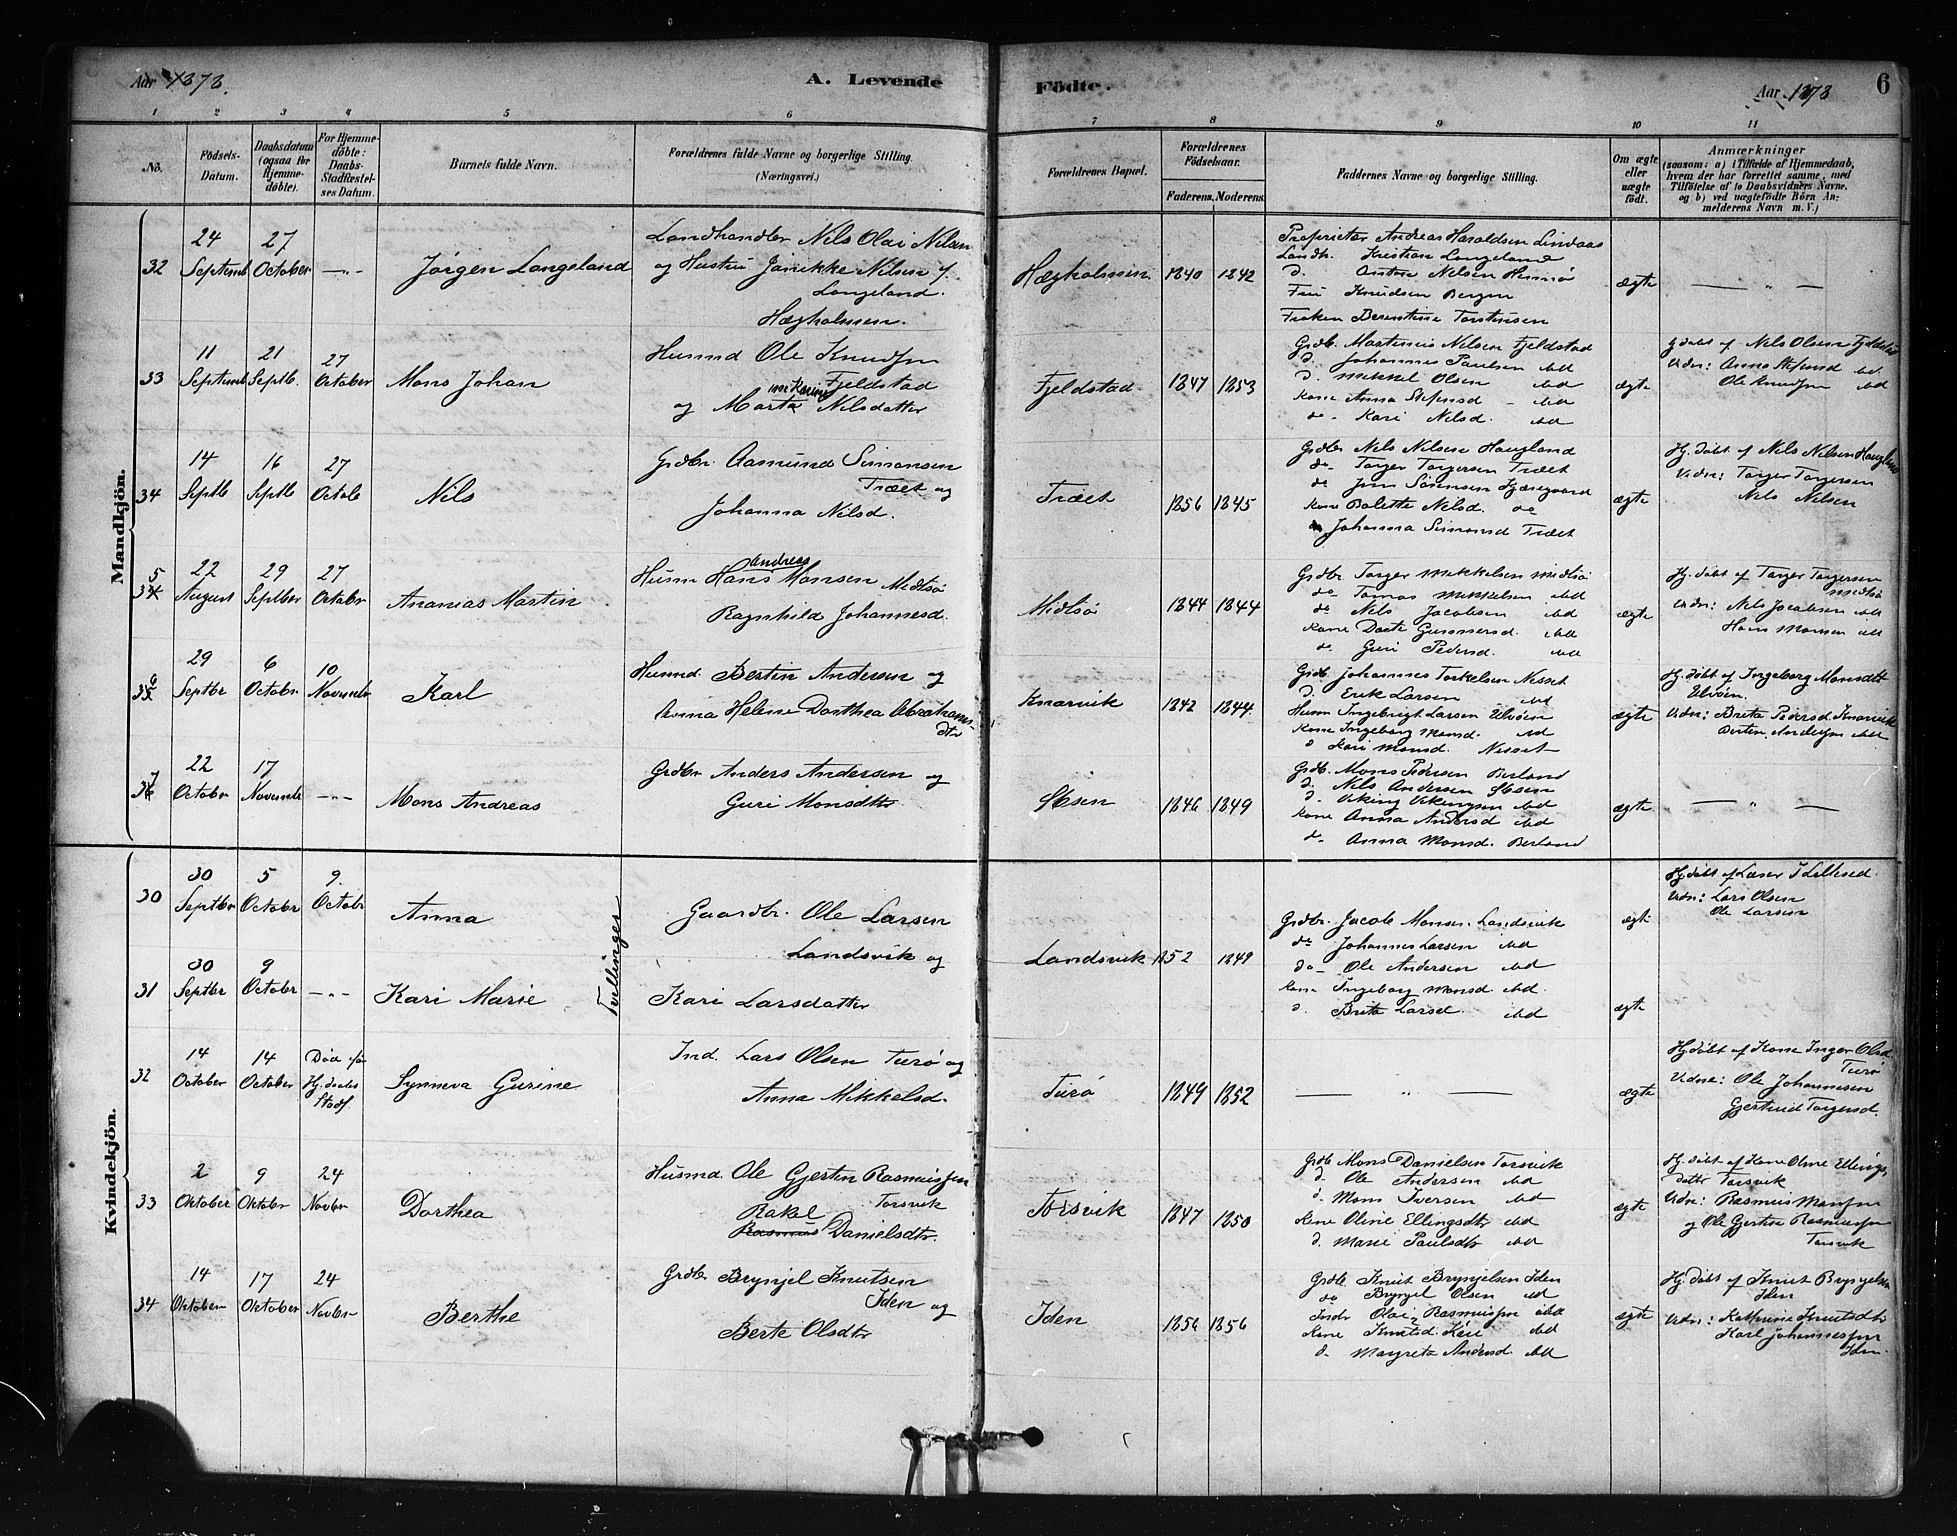 Aar 1878.
A. Levende
Födte.
Aar 1878
6
1 2 3 4 5 6 7 8 9 10 11
No.
Födsels-Datum.
Daabsdatum (ogsaa for Hjemme-döbte).
For Hjemme-döbte: Daabs-Stadfæstel-ses Datum.
Barnets fulde Navn.
Forældrenes fulde Navne og borgerlige Stilling.
(Næringsvei.)
Forældrenes Bopæl.
Forældrenes Födselsaar.
Faderens. Moderens.
Faddernes Navne og borgerlige Stilling.
Om ægte eller uægte födt.
Anmærkninger
(saasom: a) i Tilfælde af Hjemmedaab, hvem der har forrettet samme, med Tilföielse af to Daabsvidners Navne. og b) ved uægtefödte Börn An-melderens Navn m. V.)
Mandkjön.
32
24 Septemb
27 October
—"—
Jørgen Langeland
Landhandler Nils Olai Nilsen
og Hustru Janikke Nilsen f.
Langeland.
Hægholmen.
Hægholmen
1840 1842
Proprietær Andreas Haraldsen Lindaas
Landh. Kristian Langeland
d. Anton Nilsen Hennø
Fru Knudsen Bergen
Frøken Berentine Torstensen
ægte
— " —
33
11 Septemb
21 Septb.
27 October
Mons Johan
Husmd Ole Knudsen
Fjeldstad
og Marta Nilsdatter
Fjeldstad
1847 1853
Grdbr. Martinus Nilsen Fjeldstad
d. Johannes Paulsen ibd
d. Mikkel Olsen ibd
Kone Anna Stefensd - ibd
do - Kari Nilsd. ibd
ægte
Hj döbt af Nils Olsen Fjeldstad
Vidn: Anna Stefensd ibd.
Ole Knudsen ibd
34
14 Septb
16 Septb
27 Octob
Nils
Grdbr. Aamund Simonsen
Træet og
Johanna Nilsd.
Træet
1856 1845
Grdbr Nils Nilsen Haugland
do - Torger Torgersen Træet
do Jens Sørensen Kjæregaard
Kone Bolette Nilsd. do
Johanna Simonsd Træet
ægte
Hj. döbt af Nils Nilsen Haugland
Vidn: Torger Torgersen
Nils Nilsen
35
22 August
29 Septbr
27 Octobr
Ananias Martin
Andreas
Husm Hans Monsen Midtsø
Ragnhild Johannesd.
Midtsø
1844 1844
Grdbr Torger Mikkelsen Midtsø
do Tomas Mikkelsen ibd
do Nils Jacobsen ibd
Kone Dorte Gunnersd. ibd
do Guri Pedersd. ibd
ægte
Hj. döbt af Torger Torgersen
Midtsø
Vidn: Nils Jacobsen ibd
Hans Monsen ibd
36
29 Septbr
6 Octobr
10 Novembr
Karl
Husmd. Bertin Andersen og
Anna Helene Dorthea Abrahams
dtr
Knarvik
1842 1844
Grdb. Johannes Torkelsen Nesset
d. Erik Larsen ibd
Husm Ingebrigt Larsen Ulvøen
Kone Ingeborg Monsd. ibd
d Kari Monsd. Nesset
ægte
Hj. döbt af Ingeborg Monsdtr
Ulvøen.
Vidn: Brita Pedersd Knarvik
Bertin Andersen ibd
37
22 Octobr
17 Novembr
—"—
Mons Andreas
Grdbr Anders Andersen og
Guri Monsdtr
1846 1849
Grdb. Mons Pedersen Berland
d. Nils Andersen
d. Viking Vikingsen ibd
Kone Anna Andersd ibd
do. Anna Monsd. Berland
ægte
— " —
Kvindekjön.
30
30 Septbr
5 Octobr
9. Octobr
Anna
Tvillinger
Gaardbr. Ole Larsen
Landsvik og
Landsvik
1852 1849
Grdbr. Jacob Monsen Landsvik
do Johannes Larsen ibd
do - Ole Andersen ibd
Kone Ingeborg Monsd. ibd.
d. Brita Larsd. ibd
ægte
Hj. döbt af Læser I Lillesed.
Vidn: Lars Olsen
Ole Larsen
31
30 Septbr
9 Octobr
—"—
Kari Marie
Kari Larsdatter
ægte
32
14 October
14 October
Död før
Hj. daabs
Stadf.
Synneva Gurine
Ind. Lars Olsen Turø og
Anna Mikkelsd.
Turø
1849 1852
— " —
ægte
Hj döbt af Kone Inger Olsd.
Turø
Vidne: Ole Johannesen
Gjertrud Torgersd.
33
2 Oktober
9 Oktobr
24 Novbr
Dorthea
Husmd. Ole Gjertin Rasmussen
Torsvik
Rakel
Rasmus Danielsdtr.
Torsvik
1847 1850
Grdb Mons Danielsen Torsvik
d. Ole Andersen ibd
d. Mons Iversen ibd
Kone Oline Ellingsdtr ibd
d. Marie Paulsdtr ibd
ægte
Hj döbt af Kone Oline Ellings
datter Torsvik
Vidn: Rasmus Monsen
og Ole Gjertin Rasmussen
Torsvik
34
14 Oktober
17 Oktober
24 Novbr
Berthe
Grdbr Brynjel Knutsen
Iden og
Berte Olsdtr
Iden
1856 1856
Grdb Knut Brynjelsen Iden
do Brynjel Olsen ibd
Indr Olai Rasmussen ibd
Kone Knutsd. Kari ibd
d. Margreta Andersd. ibd
ægte
Hj. döbt af Knut Brynjelsen
Iden
Vidn: Kathrine Knutsdtr
Karl Johannessen
Iden.